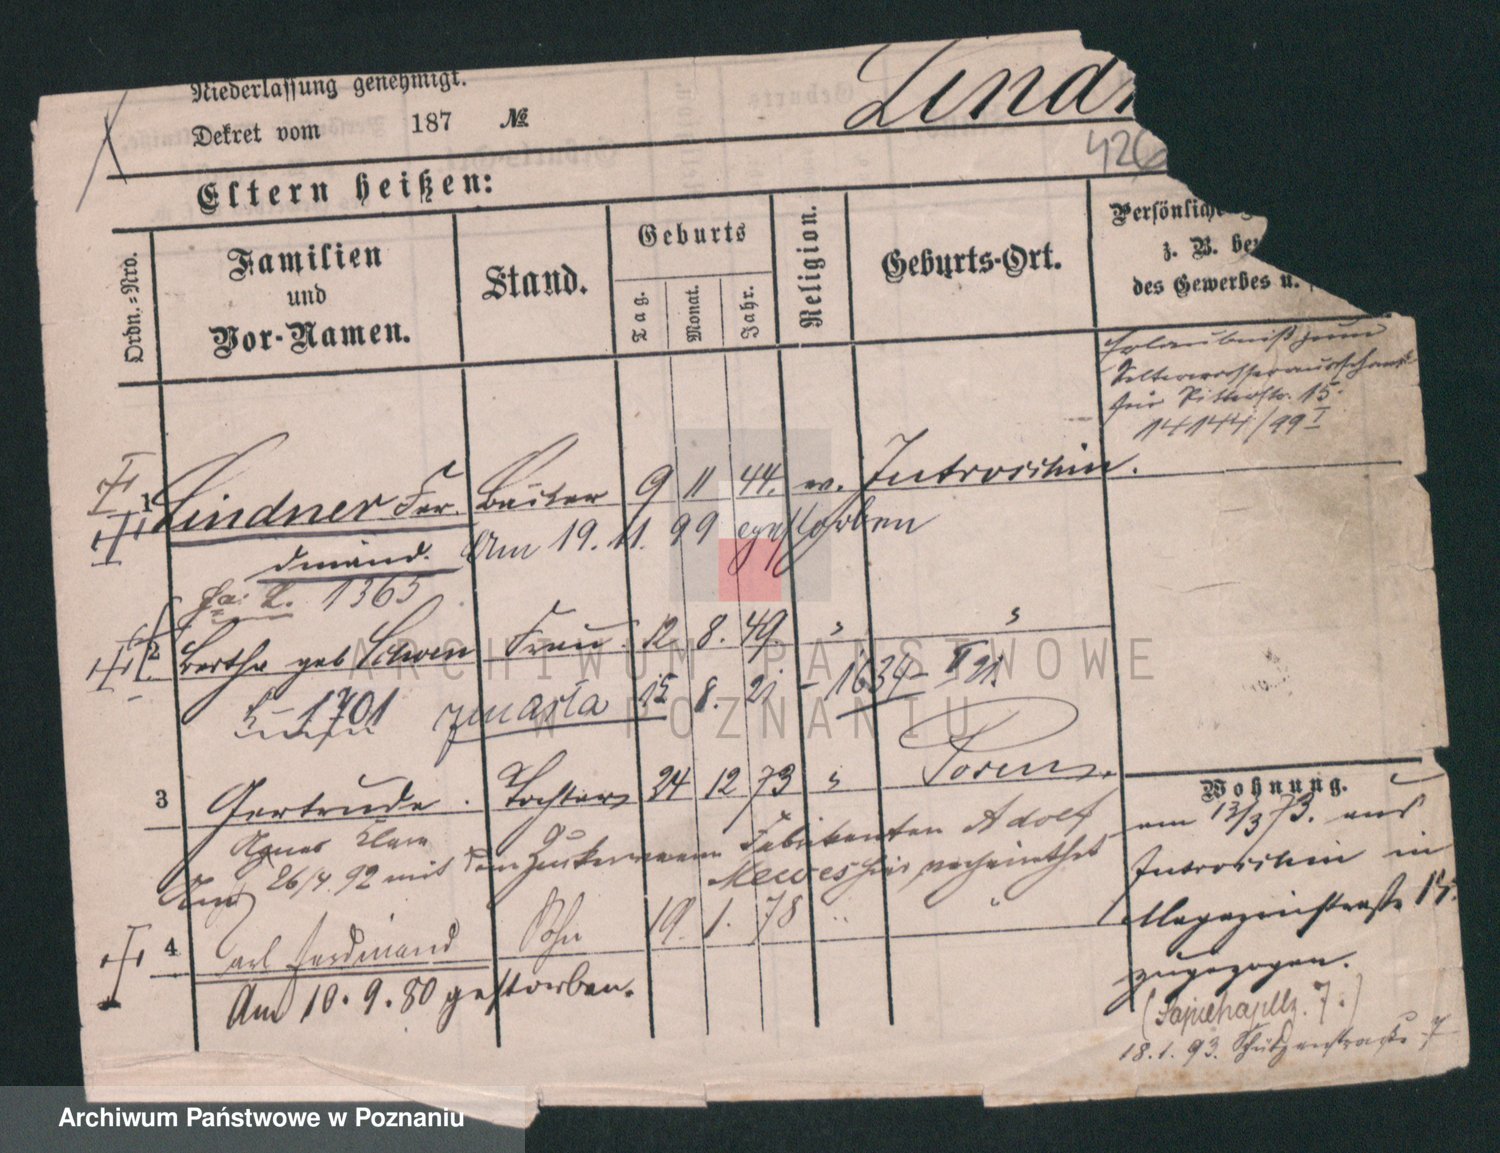 Niederlassung genehmigt.
Dekret vom 187 №
Lindn
426
Eltern heißen:
Ordn.-Nro.
Familien
und
Vor-Namen.
Stand.
Geburts
Tag.
Monat.
Jahr.
Religion.
Geburts-Ort.
Persönliche
z. B. bez
des Gewerbes u.
Erlaubniß zum
Selterwasserausschank
für Ritterstr. 15.
14144/99 I
1 Lindner Fer- Bäcker 9 11 44. ev. Introschin.
dinand. Am 19.11.99 gestorben
1365
2 Bertha geb Schoen Frau 12 8. 49. " "
1701 Maria 15 8. 21 - 1634 - V 21.
3 Gertrude. Tochter 24 12 73 " Posen.
Agnes Clara
Am 26/4. 92 mit dem Zuckerwaaren Fabrikanten Adolf
Mewes hier verheirathet
4 Carl Ferdinand Sohn 19. 1. 78 " "
Am 10.9.80 gestorben.
Wohnung.
am 13/3 73. aus
Introschin in
Magazinstraße 15.
zugezogen.
(Sapiehaplz. 7.)
18.1.93. Schützenstraße 7
ARCHIWUM PAŃSTWOWE
W POZNANIU
Archiwum Państwowe w Poznaniu